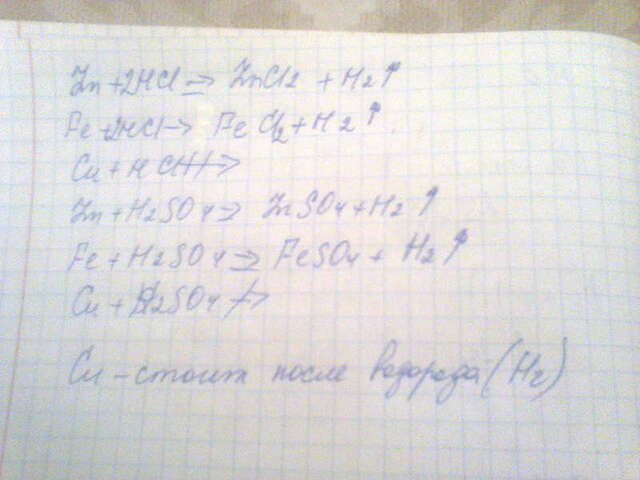 Zn + 2HCl => ZnCl2 + H2↑
Fe + 2HCl → FeCl2 + H2↑
Cu + HCl ↛
Zn + H2SO4 => ZnSO4 + H2↑
Fe + H2SO4 => FeSO4 + H2↑
Cu + H2SO4 ↛
Cu - стоит после водорода (H2)